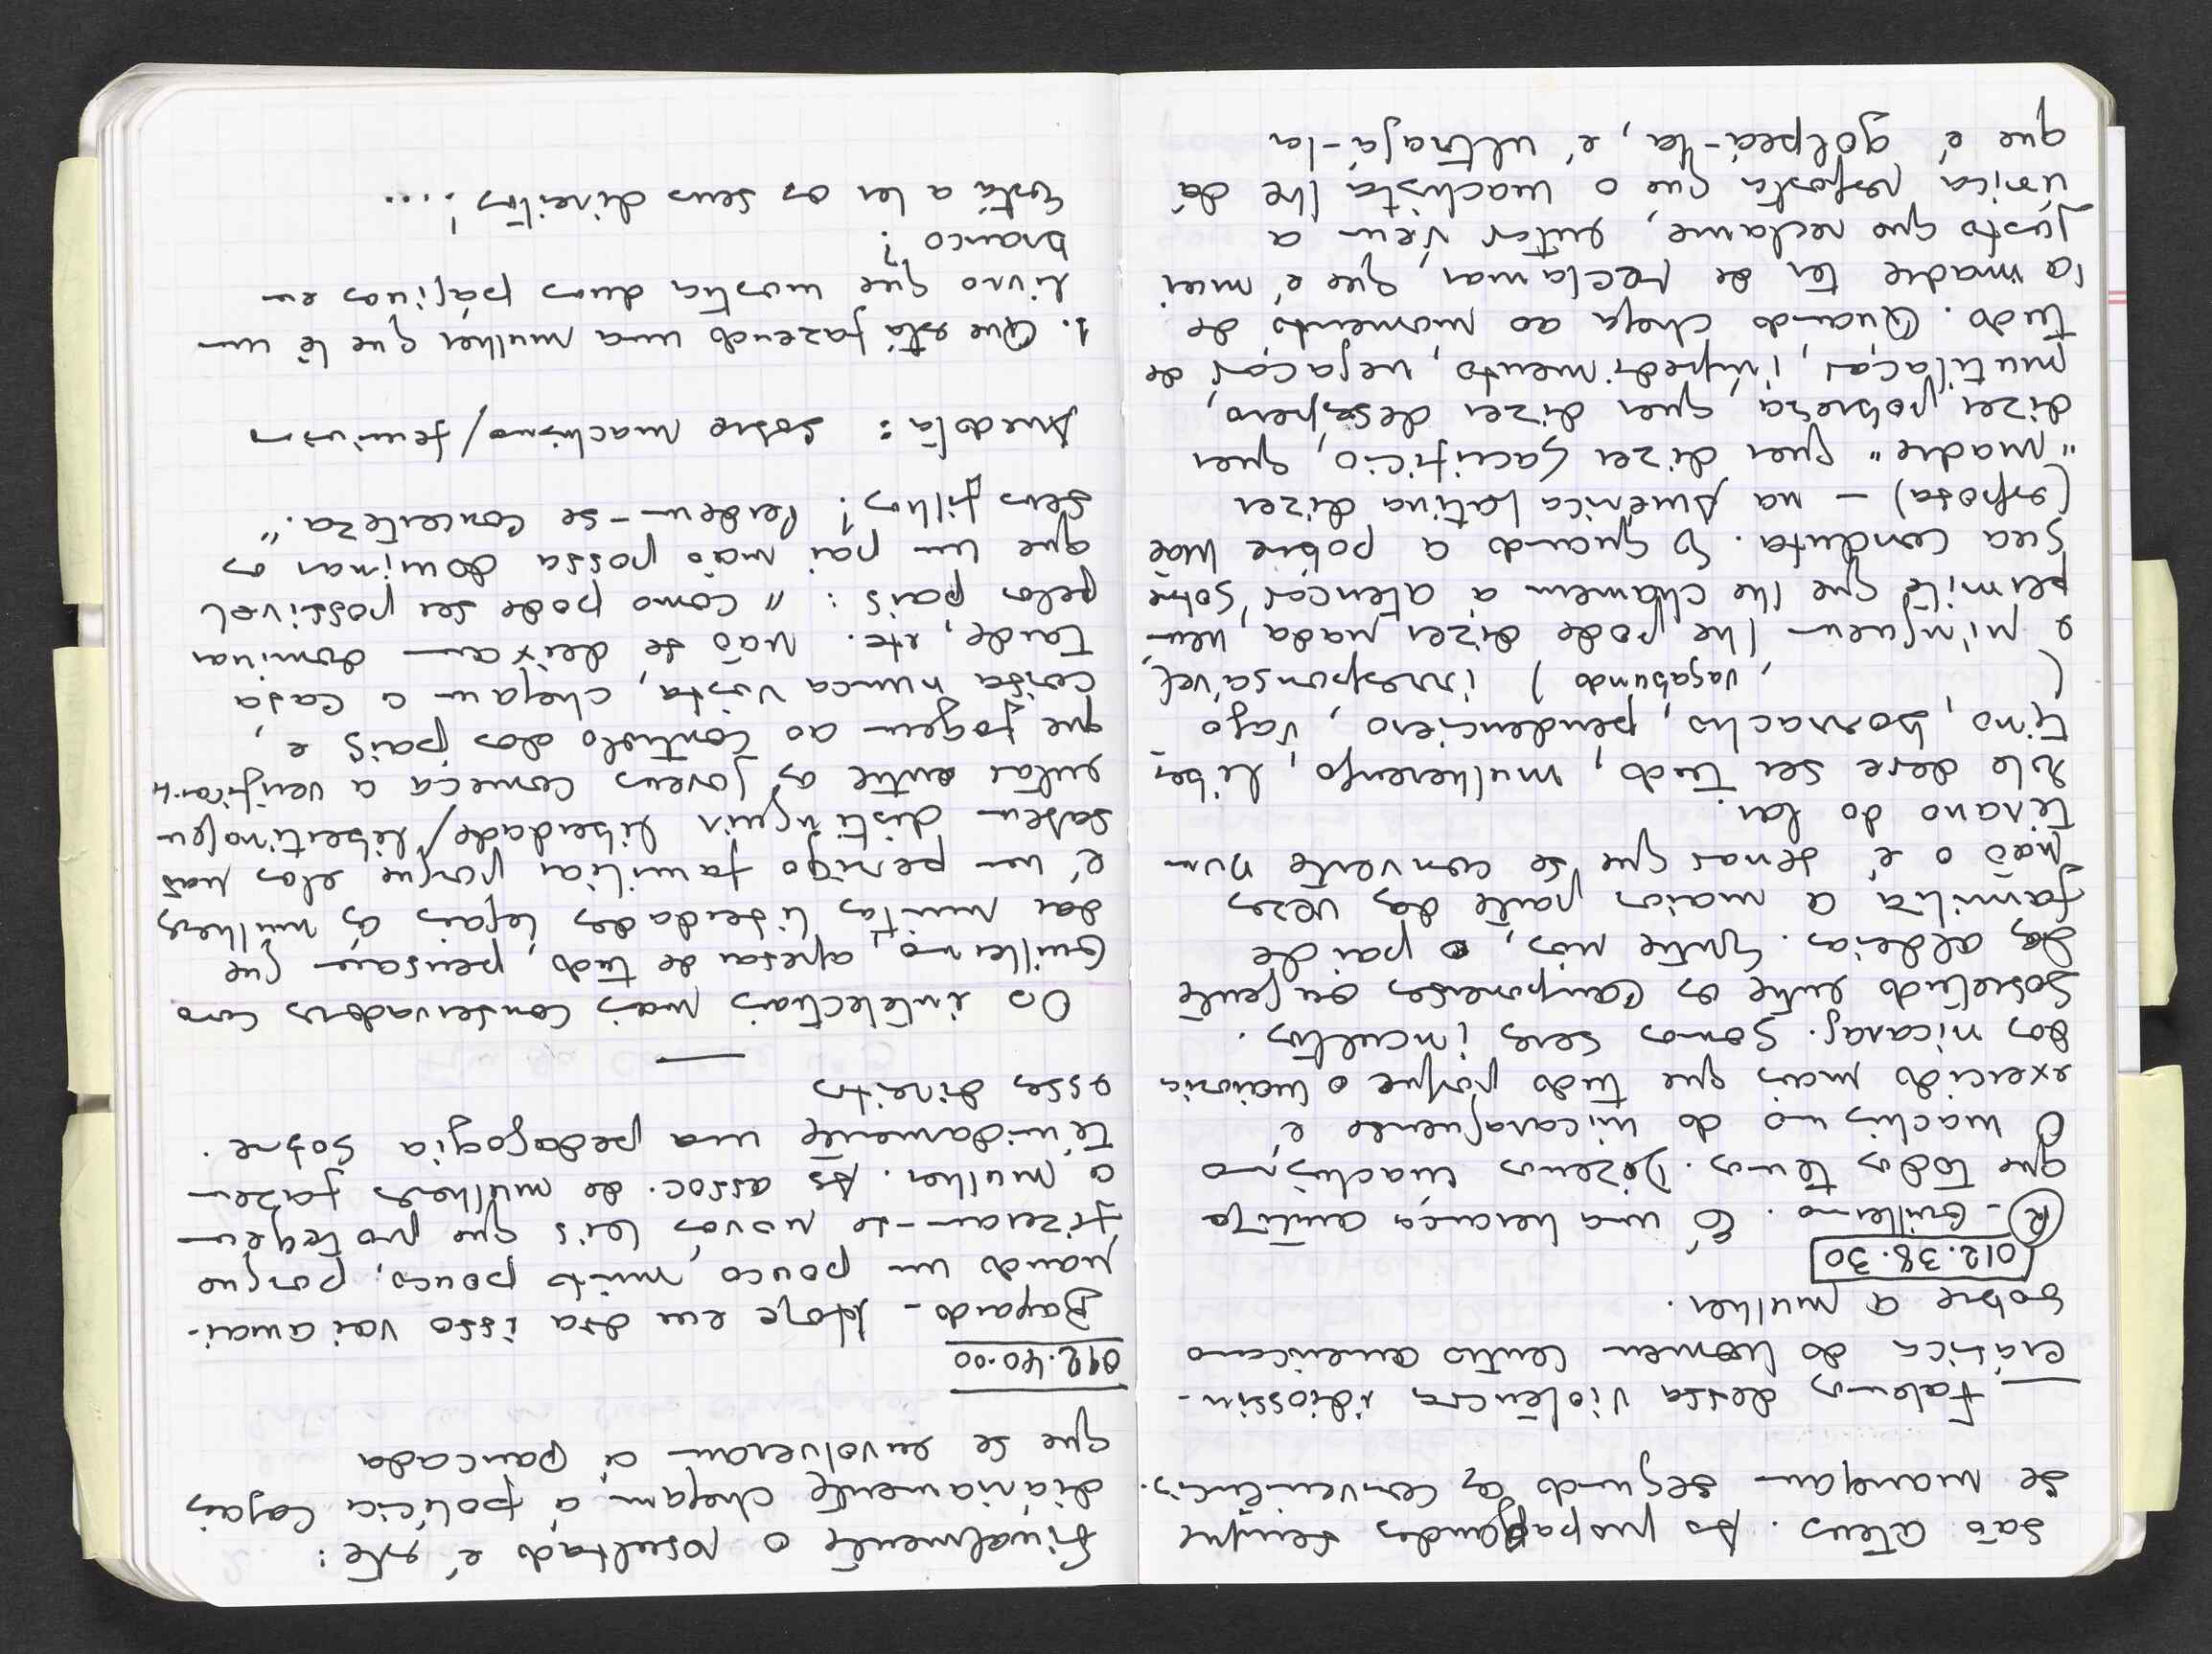 são ateus. As propagandas sempre
se manejam segundo as conveniências.
— Falemos dessa violência idiossin-
crática do homem centro americano
sobre a mulher.
012.38.30
(R) - Guillermo. É uma herança antiga
que todos temos. Dizemos machismo
O machismo do nicaraguense é
exercido mais que tudo porque a maioria
dos nicarag. somos seres incultos.
Sobretudo entre os camponeses ou gente
das aldeias. Entre nós, o pai de
família a maior parte das vezes
não o é senão que se converte num
tirano do lar.
Ele deve ser tudo, mulherengo, liber
tino, borracho, pendenciero, vago
( , vagabundo) irresponsável
e ninguém lhe pode dizer nada, nem
permite que lhe chamem a atenção sobre
sua conduta. E quando a pobre mãe
(esposa) – na América Latina dizer
"madre" quer dizer sacrifício, quer
dizer pobreza, quer dizer desespero,
mutilação, impedimento, negação de
tudo. Quando chega ao momento de
a madre ter de reclamar, que é mui
justo que reclame, então vem a
única resposta que o machista lhe dá
que é golpeá-la, é ultrajá-la
Finalmente o resultado é este:
diáriamente chegam à polícia casais
que se envolveram à pancada
012.40.00
Bayardo - Hoje em dia isso vai amai-
nando um pouco, muito pouco, porque
fizeram-se novas leis que protegem
a mulher. As assoc. de mulheres fazem
timidamente uma pedagogia sobre.
esses direitos
—
Os intelectuais mais conservadores como
Guillermo, apesar de tudo, pensam que
dar muitas liberdades legais às mulheres
é um perigo familiar porque elas não
sabem distinguir liberdade/libertinagem
então entre os jovens começa a verificar-se
que fogem ao controlo dos pais e,
coisa nunca vista, chegam a casa
tarde, etc. Não se deixam dominar
pelos pais: "Como pode ser possível
que um pai não possa dominar os
seus filhos? Perdem-se concerteza."
Anedota: sobre machismo/feminismo
1. Que está fazendo uma mulher que lê um
livro que mostra duas páginas em
branco?
Está a ler os seus direitos!...